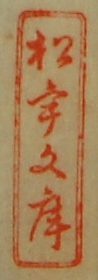 松宇文庫